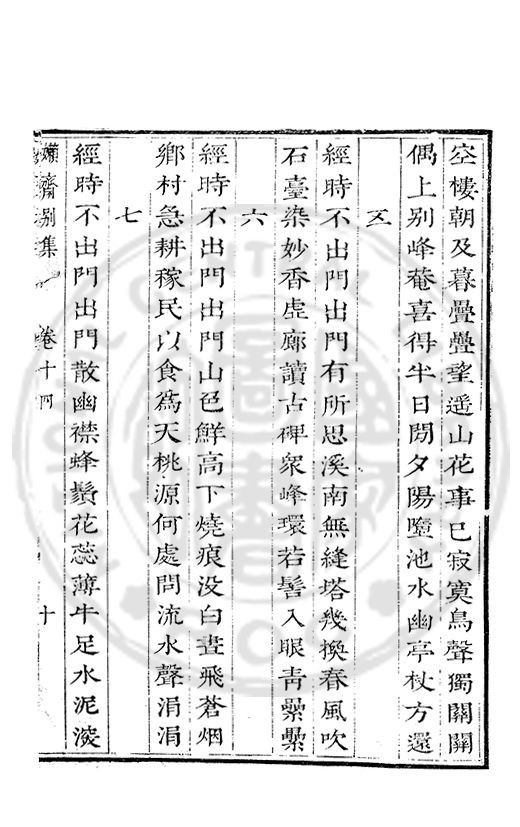 空樓朝及暮疊疊望遥山花事已寂寞鳥聲獨關關
偶上别峰菴喜得半日閒夕陽墮池水幽亭杖方還
五
經時不出門出門有所思溪南無縫塔幾換春風吹
石臺染妙香虚廊讀古碑衆峰環若髻入眼青纍纍
六
經時不出門出門山色鮮高下燒痕没白晝飛蒼烟
鄉村急耕稼民以食爲天桃源何處問流水聲涓涓
七
經時不出門出門散幽襟蜂鬚花蕊薄牛足水泥深
嬾齋别集 卷十四 十